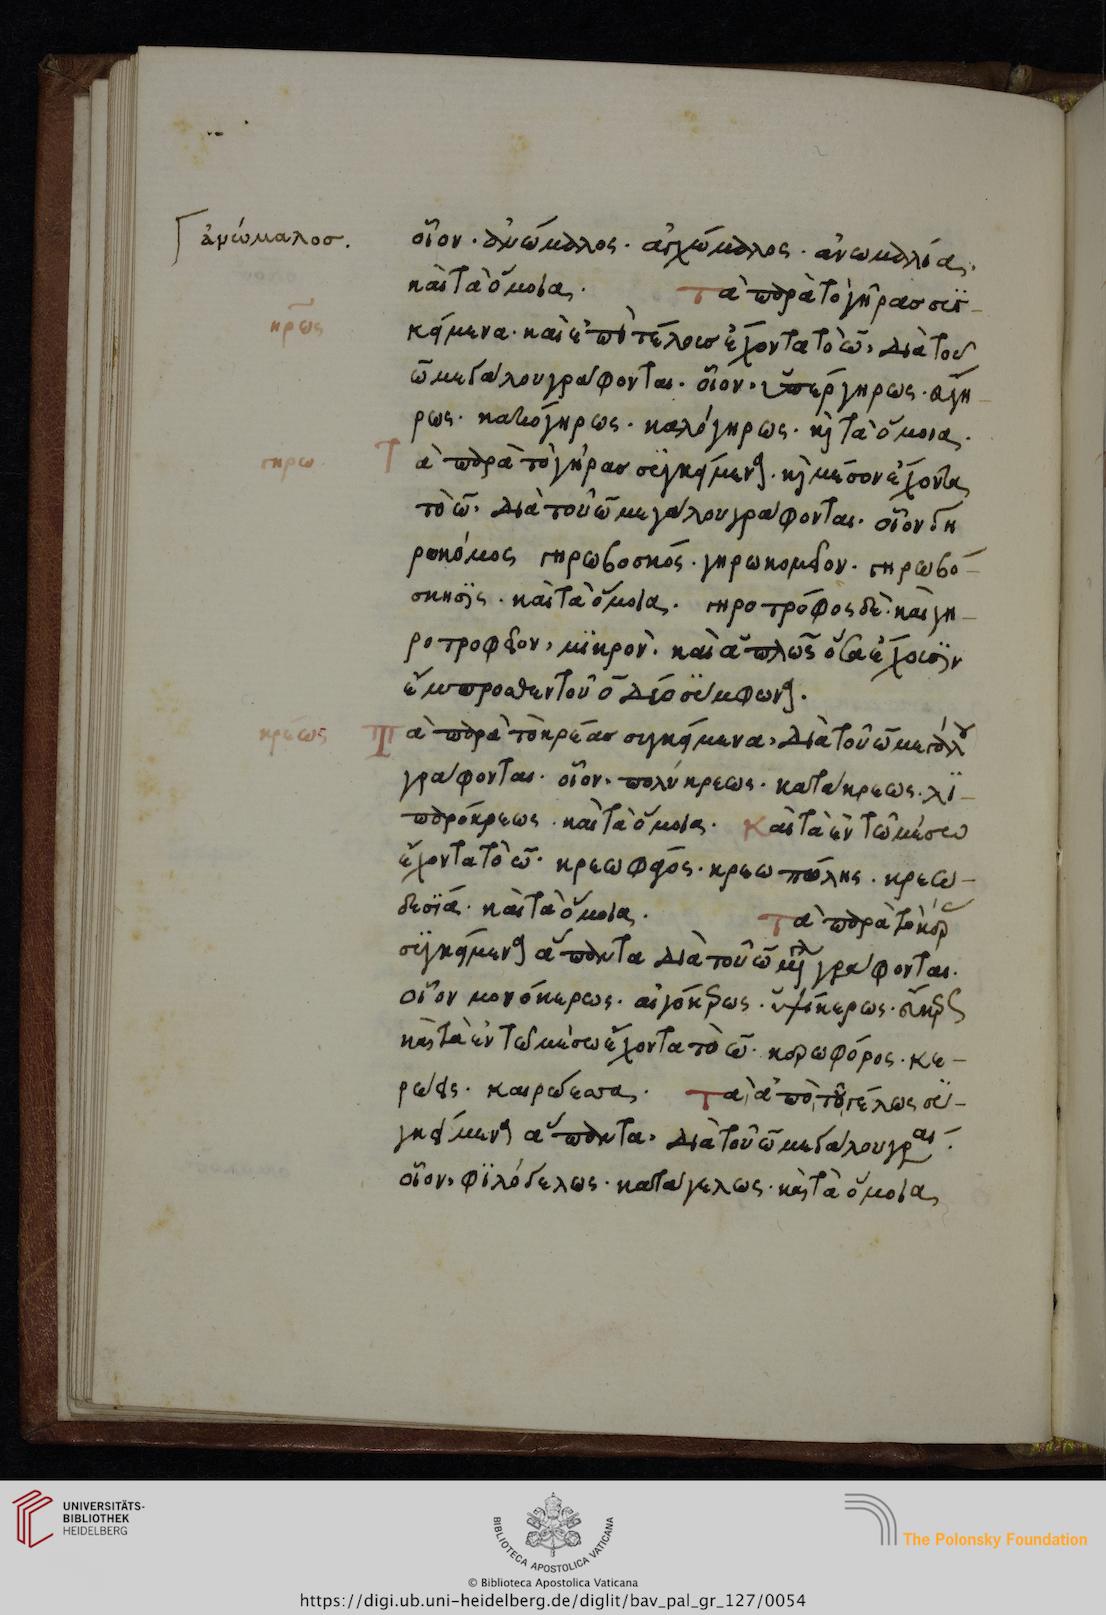 ἀνώμαλοσ.
οἷον· ἀνώμαλος· αἰχώμαλος· ἀνωμαλίας·
καὶ τὰ ὅμοια· τὰ παρὰ τὸ γῆρασ συγ-
κείμενα· καὶ ἐπὶ τέλουσ ἔχοντα τὸ ω̄, διὰ τοῦ
ω̄ μεγάλου γράφονται· οἷον, ὑπέργηρως· ἀγή-
ρως· κακόγηρως· καλόγηρως· κὶ τὰ ὅμοια.
γηρω
Τὰ παρὰ τὸ γῆρασ συγκείμενα· κὶ μέσον ἔχοντα
τὸ ω̄, διὰ τοῦ ω̄ μεγάλου γράφονται· οἷον γη
ρωκόμος γηρωβοσκός· γηρωκομεῖον· γηρωβό-
σκησις· καὶ τὰ ὅμοια. γηροτρόφος δὲ· καὶ γη-
ροτροφεῖον, μικρὸν· καὶ ἁπλῶς ὅσα ἔχουσιν
ἔμπροσθεν τοῦ ο̄ διὸ σύμφωνα.
κρέως
Τὰ παρὰ τὸ κρέασ συγκείμενα, διὰ τοῦ ω̄ μεγάλου
γράφονται· οἷον, πολύκρεως· κατάκρεως· λι-
παρόκρεως· καὶ τὰ ὅμοια· καὶ τὰ ἐν τῶ μέσω
ἔχοντα τὸ ω̄· κρεωφάγος· κρεωπώλης· κρεω-
δεσία· καὶ τὰ ὅμοια· τὰ παρὰ τὸ κέρας
συγκείμενα ἅπαντα διὰ τοῦ ω̄ μεγ γράφονται.
οἷον μονόκερως· αἰγόκερως· ὑψίκερως·
καὶ τὰ ἐν τῶ μέσω ἔχοντα τὸ ω̄· κερωφόρος· κε-
τὰ ἀπὸ τοῦ γέλως συ-
γκείμενα ἅπαντα, διὰ τοῦ ω̄ μεγάλου γραφ.
οἷον, φιλόγελως· κατάγελως· καὶ τὰ ὅμοια,
UNIVERSITÄTS-
BIBLIOTHEK
HEIDELBERG
BIBLIOTECA APOSTOLICA VATICANA
The Polonsky Foundation
© Biblioteca Apostolica Vaticana
https://digi.ub.uni-heidelberg.de/diglit/bav_pal_gr_127/0054